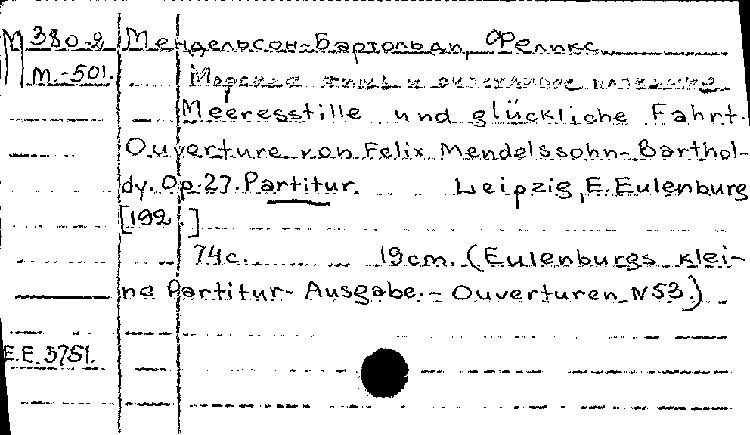 М 380-2 Мендельсон-Бартольди, Феликс
м.-501. Морская тишь и
Meeresstille und glückliche Fahrt.
Ouverture von Felix Mendelssohn-Barthol-
dy. Op. 27. Partitur. Leipzig, E. Eulenburg
[192 ]
74с. 19см. (Eulenburgs klei-
ne Partitur-Ausgabe.- Ouverturen N53.)
E.E. 3751.